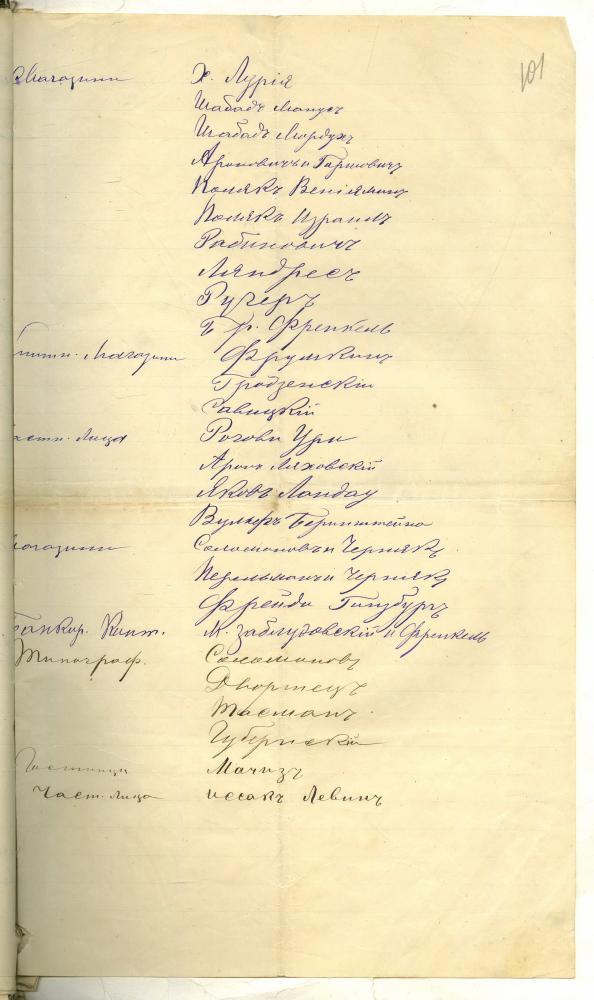 101
Магазины Х. Лурія
Шабадъ Манухъ
Шабадъ Мордухъ
Ароновичъ и Гаршовичъ
Полякъ Веніяминъ
Полякъ Израиль
Рабиновичъ
Ляндресъ
Ручеръ
Бр. Френкель
питн. Магазины Фрумкинъ
Гродзенскій
Савицкій
астн. Лица Рогови Ури
Аронъ Ляховскій
Яковъ Ландау
Вульфъ Беринштейнъ
Магазины Саломоновъ и Чернякъ
Перельманъ и Чернякъ
Фрейда Гинзбургъ
Банкир. Конт. М. Заблудовскій и Френкель
Типограф. Соломоновъ
Дворжецъ
Тасманъ
Губернскій
Гостиницы
Частн. Лица Иссакъ Левинъ